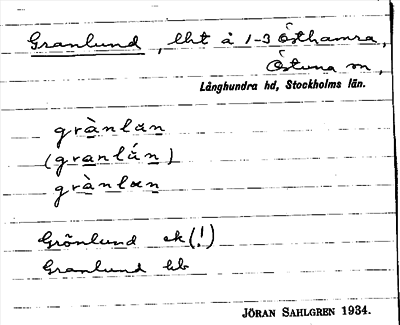 Granlund, lht å 1-3 Östhamra,
Östuna sn,
Långhundra hd, Stockholms län.
grànlan
(granlán)
grànlan
Grönlund ek (!)
Granlund hb
JÖRAN SAHLGREN 1934.